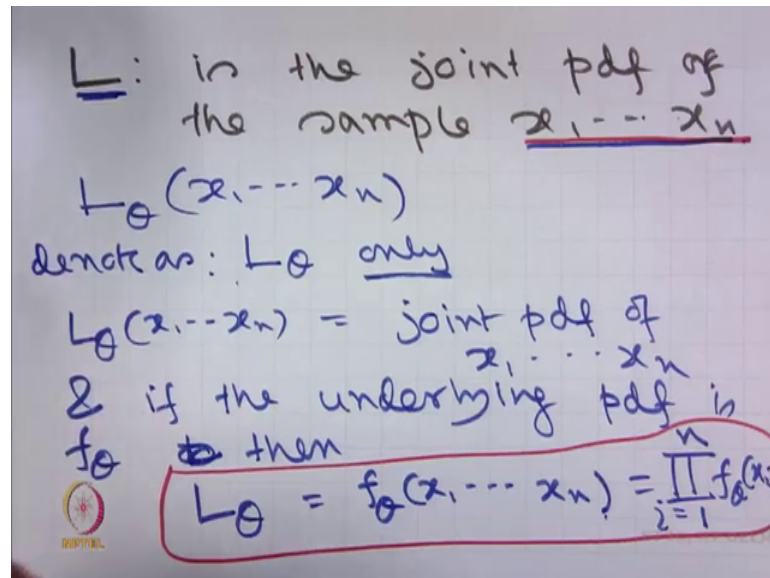 L: is the joint pdf of
the sample x₁ --- xₙ
L_θ (x₁ --- xₙ)
denote as: L_θ only
L_θ (x₁ -- xₙ) = joint pdf of
x₁ . . . xₙ
& if the underlying pdf is
f_θ then
L_θ = f_θ (x₁ --- xₙ) = ∏ⁿᵢ₌₁ f_θ(xᵢ
NPTEL